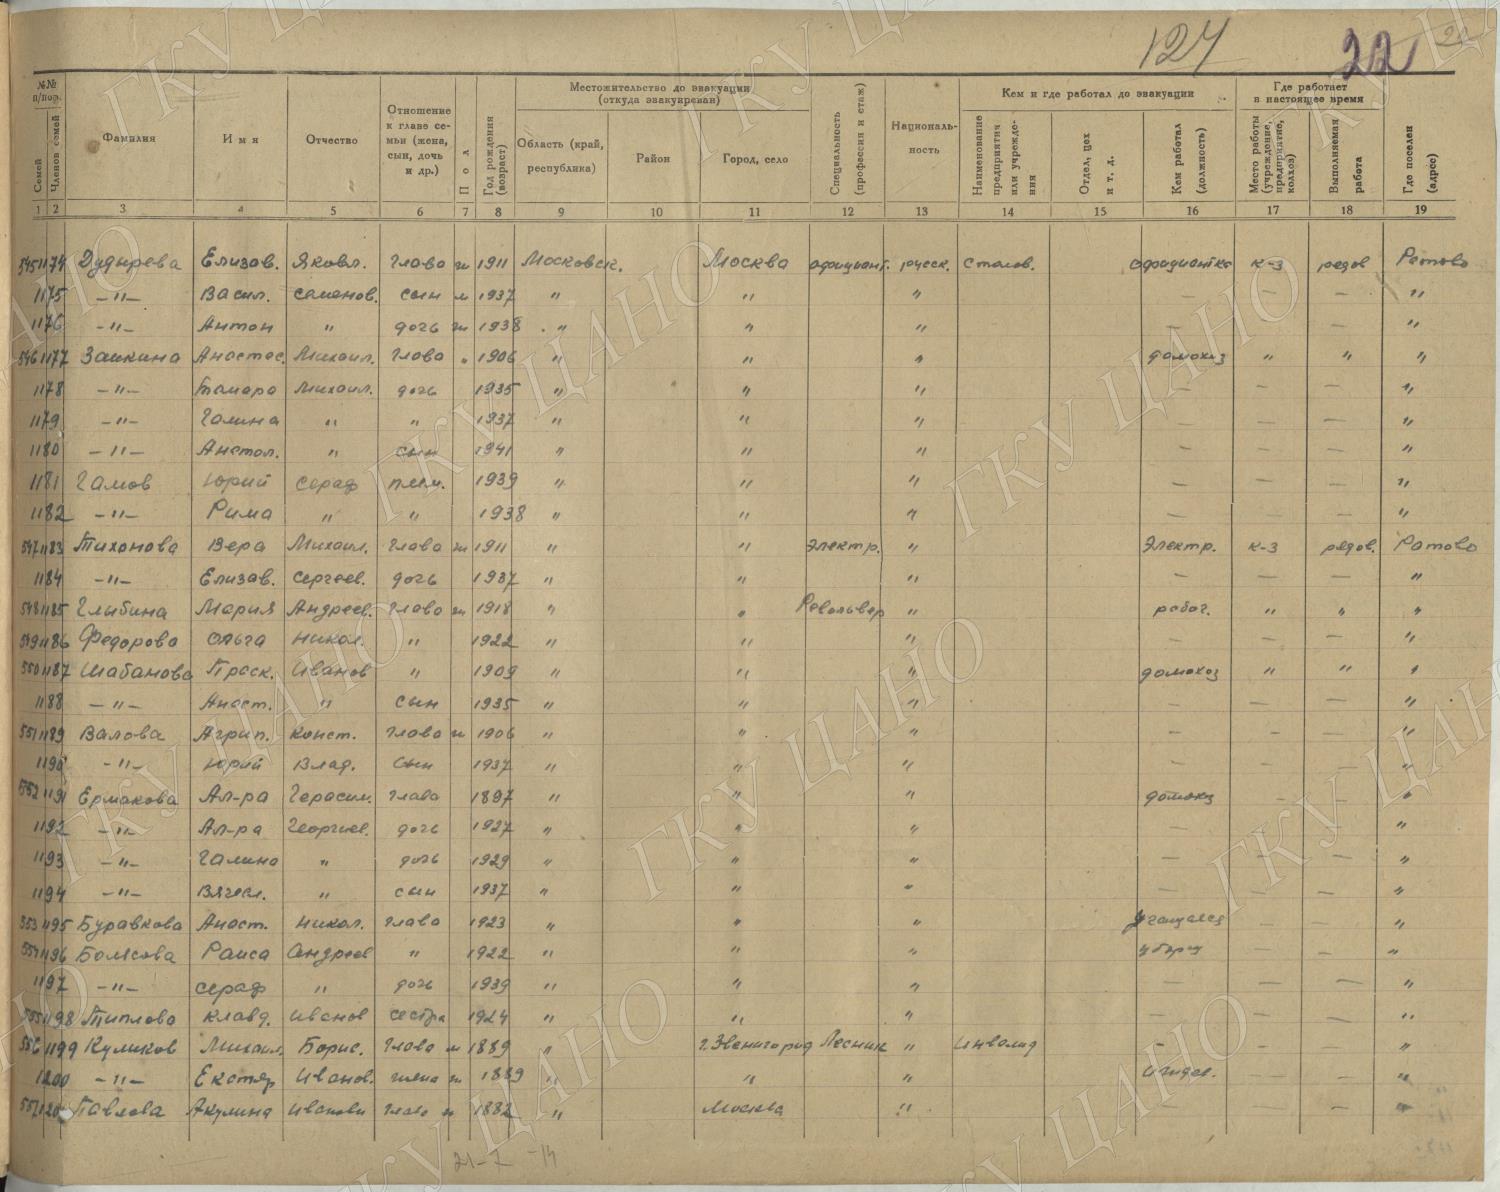 127 22 22
№№ п/пор. Местожительство до эвакуации (откуда эвакуирован) Кем и где работал до эвакуации Где работает в настоящее время
Семей Членов семей Фамилия Имя Отчество Отношение к главе семьи (жена, сын, дочь и др.) Пол Год рождения (возраст) Область (край, республика) Район Город, село Специальность (профессия и стаж) Национальность Наименование предприятия или учреждения Отдел, цех и т. д. Кем работал (должность) Место работы (учреждение, предприятие, колхоз) Выполняемая работа Где поселен (адрес)
1 2 3 4 5 6 7 8 9 10 11 12 13 14 15 16 17 18 19
545 1174 Дудырева Елизав. Яковл. Глава ж 1911 Московск. Москва официант. русск. Столов. официантка к-з рядов Ратово
1175 —"— Васил. Семенов. сын м 1937 " " " — — — "
1176 —"— Антон " дочь ж 1938 " " " — — — "
546 1177 Заикина Анастас. Михаил. Глава " 1906 " " " домохоз " " "
1178 —"— Тамара Михаил. дочь 1935 " " " — — — "
1179 —"— Галина " " 1937 " " " — — — "
1180 —"— Анатол. " сын 1941 " " " — — — "
1181 Гамов Юрий Сераф плем. 1939 " " " — — — "
1182 —"— Рима " " 1938 " " " — — — "
547 1183 Тихонова Вера Михаил. Глава ж 1911 " " электр. " Электр. к-з рядов. Ратово
1184 —"— Елизав. Сергеев. дочь 1937 " " " — — — "
548 1185 Глыбина Мария Андреев. Глава ж 1918 " " Револьвер " работ. " " "
549 1186 Федорова Ольга Никол. " 1922 " " " — — — "
550 1187 Шабанова Праск. Иванов " 1909 " " " домохоз " " "
1188 —"— Анаст. " сын 1935 " " " — — — "
551 1189 Валова Агрип. Конст. Глава ж 1906 " " " — — — "
1190 —"— Юрий Влад. Сын 1937 " " " — — — "
552 1191 Ермакова Ал-ра Герасим. Глава 1897 " " " домохз — — "
1192 —"— Ал-ра Георгиев. дочь 1927 " " " — — — "
1193 —"— Галина " дочь 1929 " " " — — — "
1194 —"— Вячесл. " сын 1937 " " " — — — "
553 1195 Буравкова Анаст. Никол. Глава 1923 " " " Учащаяся — — "
554 1196 Болясова Раиса Андреев " 1922 " " " уборщ — — "
1197 —"— Сераф " дочь 1939 " " " — — — "
555 1198 Типлова Клавд. Иванов сестра 1924 " " " — — — "
556 1199 Куликов Михаил. Борис. Глава м 1889 " г. Звенигород Лесник " Инвалид — — — "
1200 —"— Екатер Иванов. жена ж 1889 " " " Иждев. — — "
557 1201 Павлова Акулина Ивановн Глава ж 1882 " Москва " — — — "
ГКУ ЦАНО